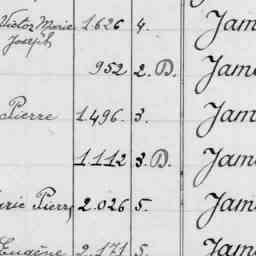 Victor Marie 1.626 4. Jam
Joseph
952 2. D. Jam
Pierre 1.496. 3. Jam
1112 3. D. Jam
Pierre 2.026 5. Jam
Eugène 2.171 5. Jam